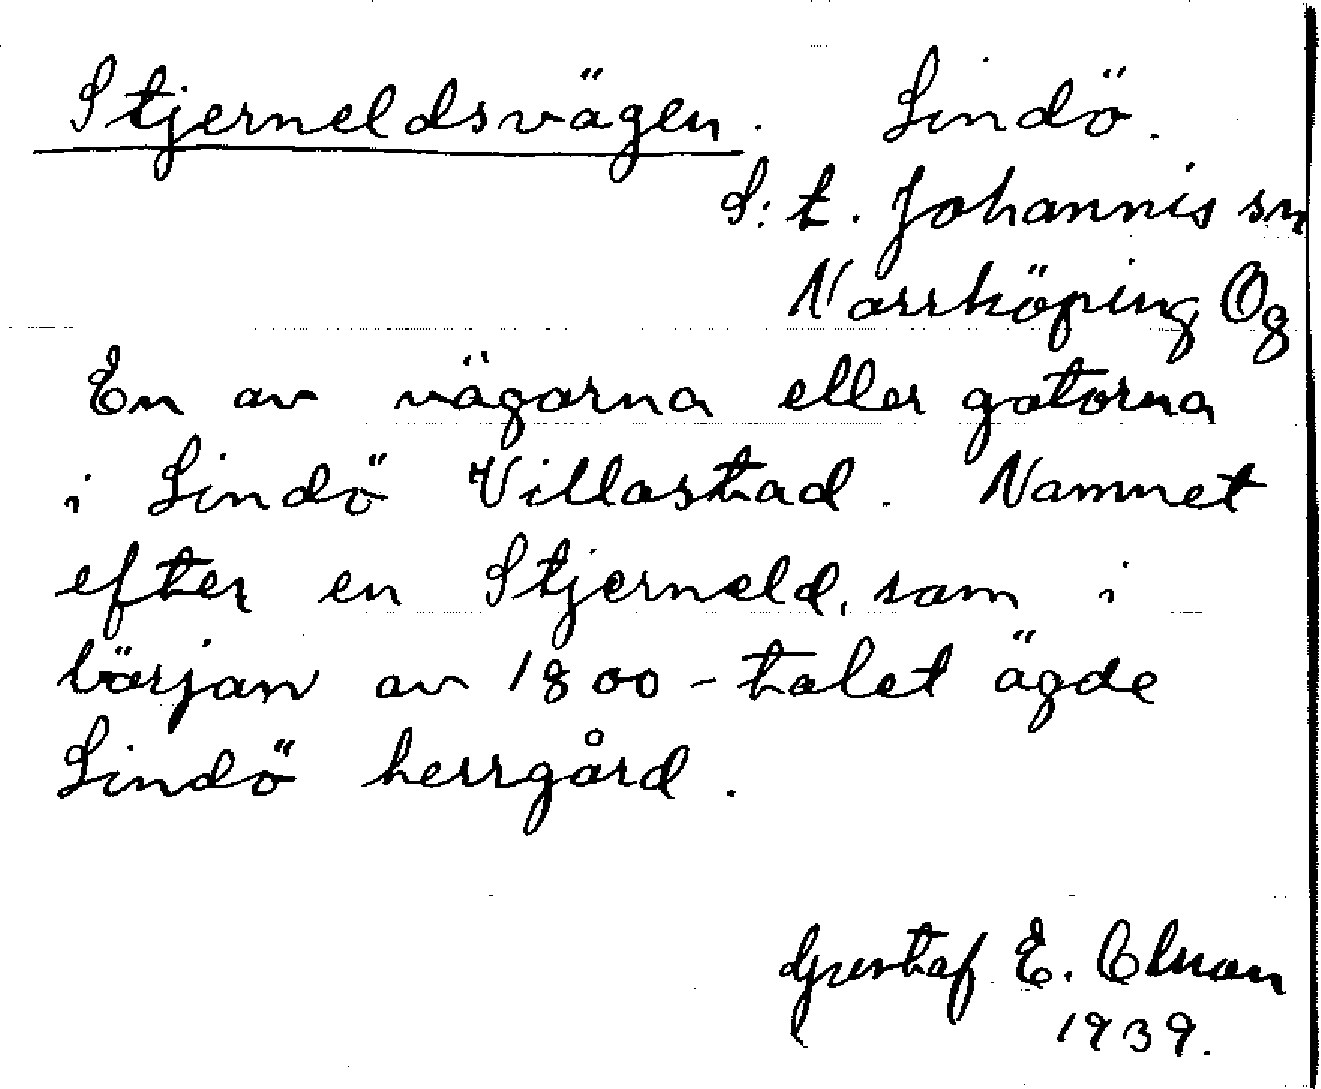 Stjerneldsvägen. Lindö.
S:t. Johannis sn
Norrköping Ög
En av vägarna eller gatorna
i Lindö Villastad. Namnet
efter en Stjerneld, som i
början av 1800-talet ägde
Lindö herrgård.
Gustaf E. Olsson
1939.